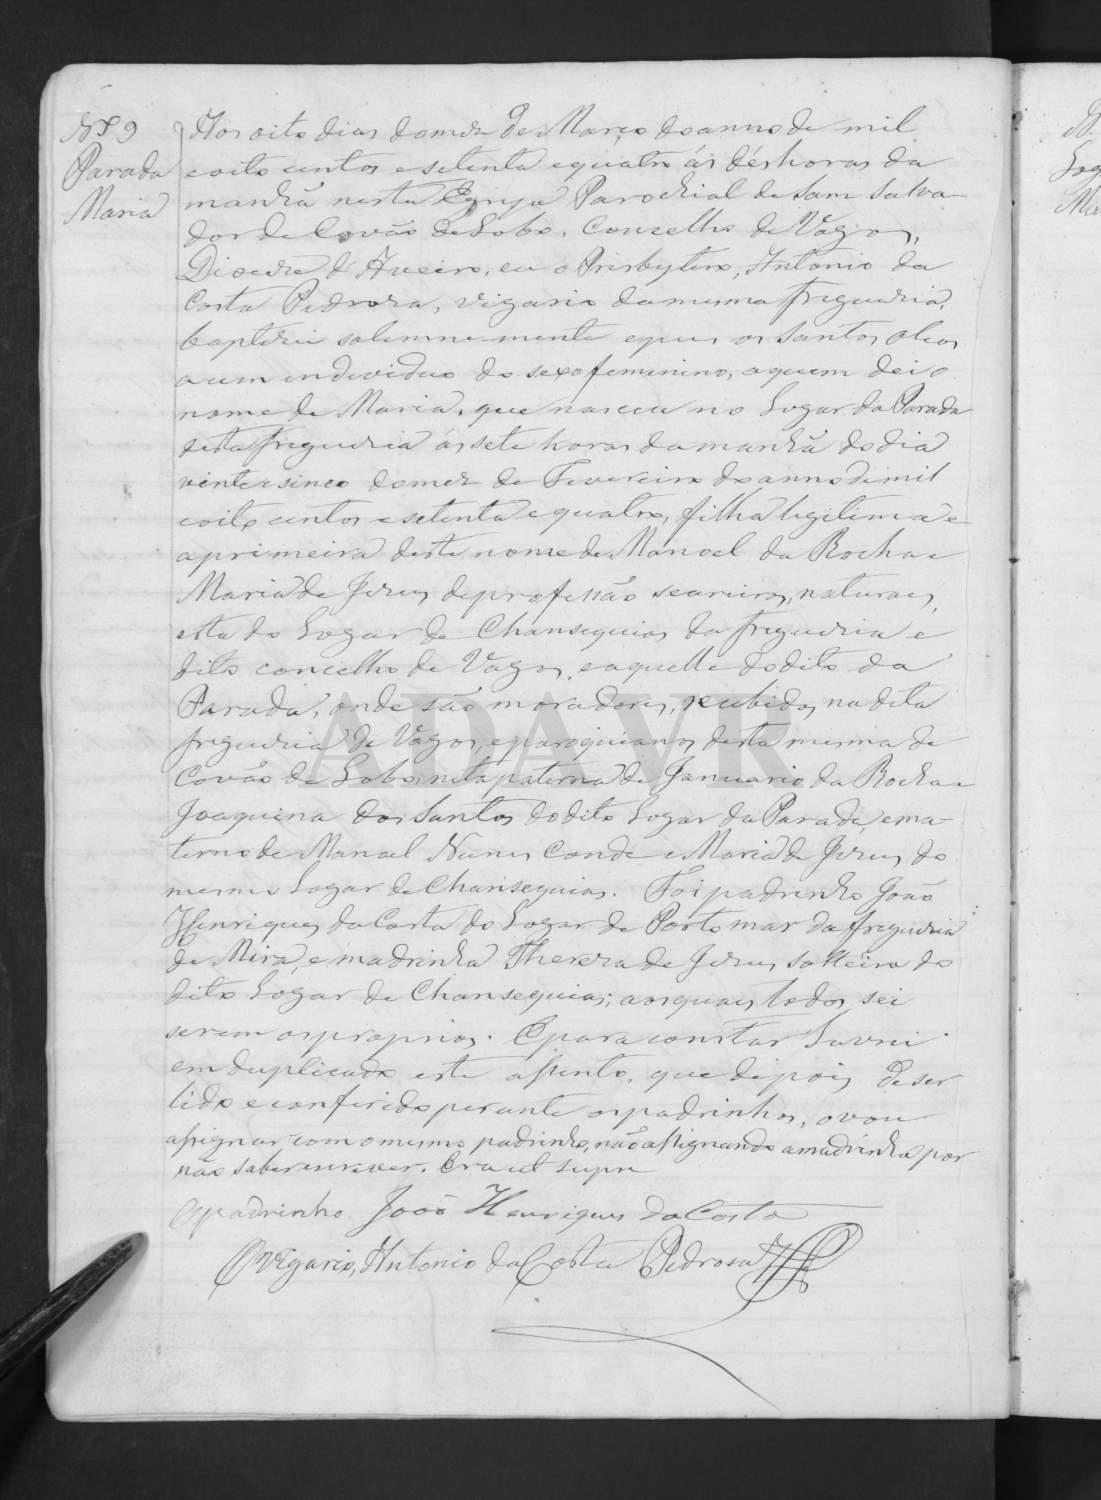 Nº 9
Parada
Maria
Aos oito dias do mez de Março do anno de mil
e oito centos e setenta e quatro ás dés horas da
manhã nesta Egreja Parochial de Sam Salva-
dor de Covão de Lobo, Conselho de Vagos,
Diocese d'Aveiro, eu o Presbytero, Antonio da
Costa Pedroza, vigario da mesma freguezia,
baptizei solemne-mente e pus os Santos oleos
a um individuo do sexo feminino, a quem dei o
nome de Maria, que nasceu no Logar da Parada
desta freguezia ás sete horas da manhã do dia
vinte e sinco do mez de Fevereiro do anno de mil
e oito centos e setenta e quatro, filha legitima e
a primeira deste nome de Manoel da Rocha e
Maria de Jezus, de profissão seareiros, naturaes,
esta do Logar de Chansequias da freguezia e
dito concelho de Vagos, e aquelle do dito da
Parada, onde são moradores, recebidos na dita
freguezia de Vagos, e paroquianos desta mesma de
Covão de Lobo, neta paterna de Januario da Rocha e
Joaquina dos Santos do dito Logar da Parada, e ma-
terno de Manoel Nunes Conde e Maria de Jezus do
mesmo Logar de Chansequias. Foi padrinho João
Henriques da Costa do Logar de Porto mar da freguezia
de Mira, e madrinha Thereza de Jezus solteira do
dito Logar de Chansequias; aos quaes todos sei
serem os proprios. E para constar lavrei
em duplicado este assento, que depois de ser
lido e conferido perante os padrinhos, o vou
assignar com o mesmo padrinho, não assignando a madrinha por
não saber escrever. Era ut supra
O padrinho João Henriques da Costa
O vigario, Antonio da Costa Pedrosa
ADAVR